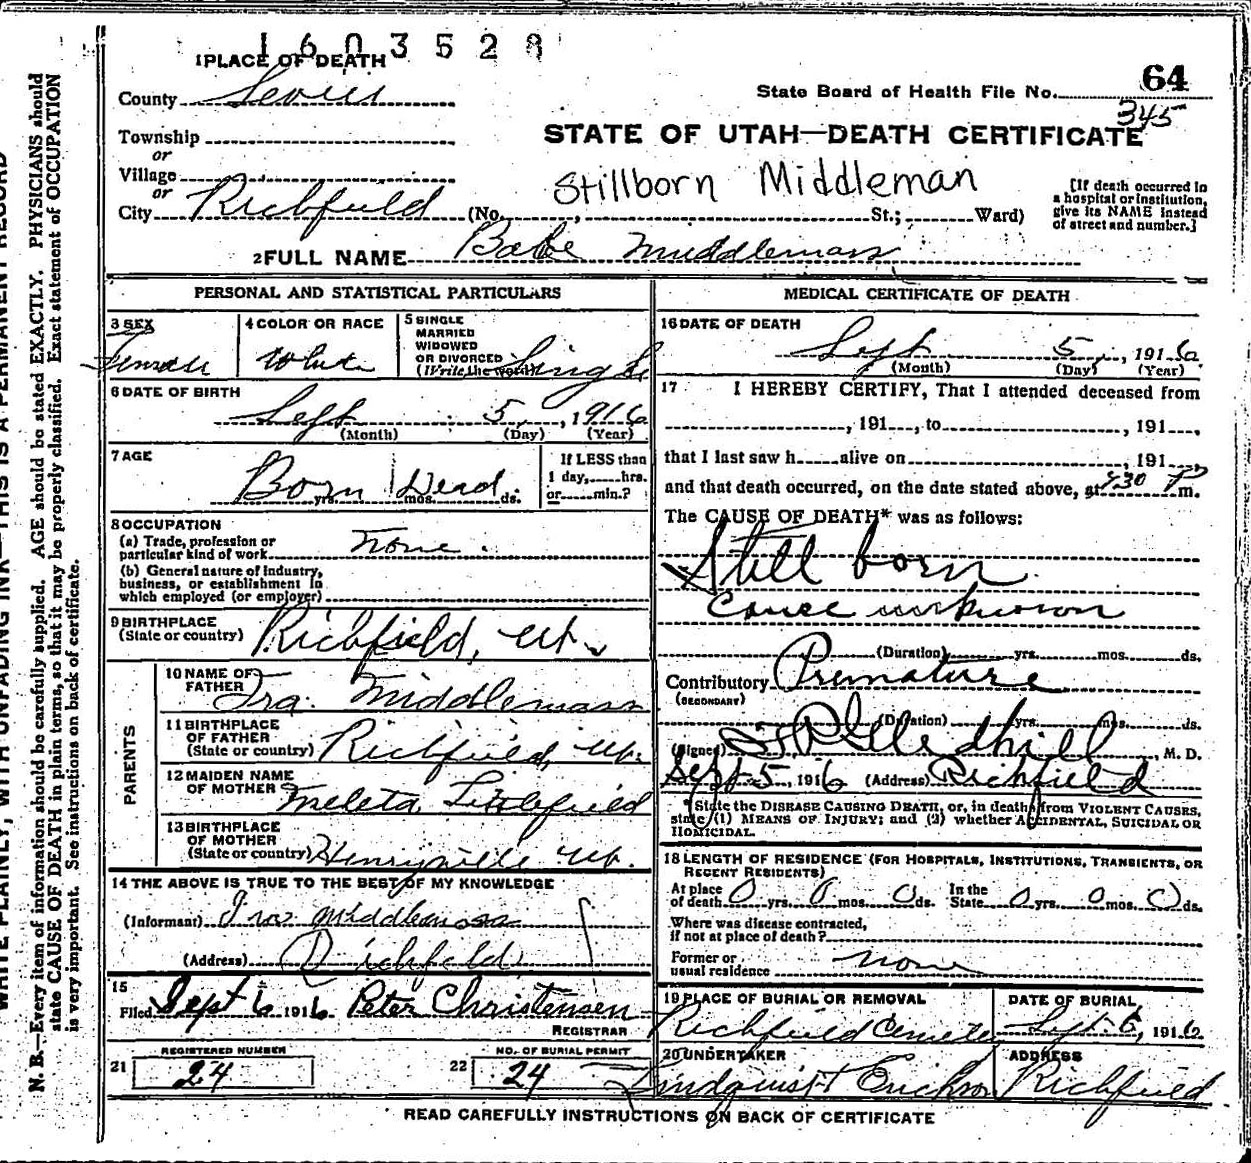 1603528
1 PLACE OF DEATH
64
County Sevier
State Board of Health File No. 345
Township
or
STATE OF UTAH—DEATH CERTIFICATE
Village
or
Stillborn Middleman
City Richfield (No. , St.; Ward)
[If death occurred in
a hospital or institution,
give its NAME instead
of street and number.]
2 FULL NAME Babe Middlemass
PERSONAL AND STATISTICAL PARTICULARS
3 SEX
Female
4 COLOR OR RACE
White
5 SINGLE
MARRIED
WIDOWED
OR DIVORCED
(Write the word) Single
6 DATE OF BIRTH
Sept 5, 1916
(Month) (Day) (Year)
7 AGE
Born Dead
yrs. mos. ds.
If LESS than
1 day, hrs.
or min.?
8 OCCUPATION
(a) Trade, profession or
particular kind of work None.
(b) General nature of industry,
business, or establishment in
which employed (or employer)
9 BIRTHPLACE
(State or country) Richfield, Ut.
PARENTS
10 NAME OF
FATHER Ira Middlemass
11 BIRTHPLACE
OF FATHER
(State or country) Richfield, Ut.
12 MAIDEN NAME
OF MOTHER Meleta Littlefield
13 BIRTHPLACE
OF MOTHER
(State or country) Henryville Ut.
14 THE ABOVE IS TRUE TO THE BEST OF MY KNOWLEDGE
(Informant) Ira Middlemass
(Address) Richfield
15
Filed Sept 6 1916 Peter Christensen
REGISTRAR
21 REGISTERED NUMBER
24
22 NO. OF BURIAL PERMIT
24
MEDICAL CERTIFICATE OF DEATH
16 DATE OF DEATH
Sept 5, 1916
(Month) (Day) (Year)
17 I HEREBY CERTIFY, That I attended deceased from
, 191 , to , 191 ,
that I last saw h alive on , 191 ,
and that death occurred, on the date stated above, at 730 P m.
The CAUSE OF DEATH* was as follows:
Still born
Cause unknown
(Duration) yrs. mos. ds.
Contributory Premature
(SECONDARY)
(Duration) yrs. mos. ds.
(Signed) Gledhill, M. D.
Sept 5, 1916 (Address) Richfield
*State the DISEASE CAUSING DEATH, or, in deaths from VIOLENT CAUSES,
state (1) MEANS OF INJURY; and (2) whether ACCIDENTAL, SUICIDAL OR
HOMICIDAL.
18 LENGTH OF RESIDENCE (FOR HOSPITALS, INSTITUTIONS, TRANSIENTS, OR
RECENT RESIDENTS)
At place
of death 0 yrs. 0 mos. 0 ds. In the
State 0 yrs. 0 mos. 0 ds.
Where was disease contracted,
if not at place of death?
Former or
usual residence none
19 PLACE OF BURIAL OR REMOVAL
Richfield Cemetery
DATE OF BURIAL
Sept. 6, 1916
20 UNDERTAKER
Lindquist Erickson
ADDRESS
Richfield
READ CAREFULLY INSTRUCTIONS ON BACK OF CERTIFICATE
WRITE PLAINLY, WITH UNFADING INK—THIS IS A PERMANENT RECORD
N. B.—Every item of information should be carefully supplied. AGE should be stated EXACTLY. PHYSICIANS should
state CAUSE OF DEATH in plain terms, so that it may be properly classified. Exact statement of OCCUPATION
is very important. See instructions on back of certificate.